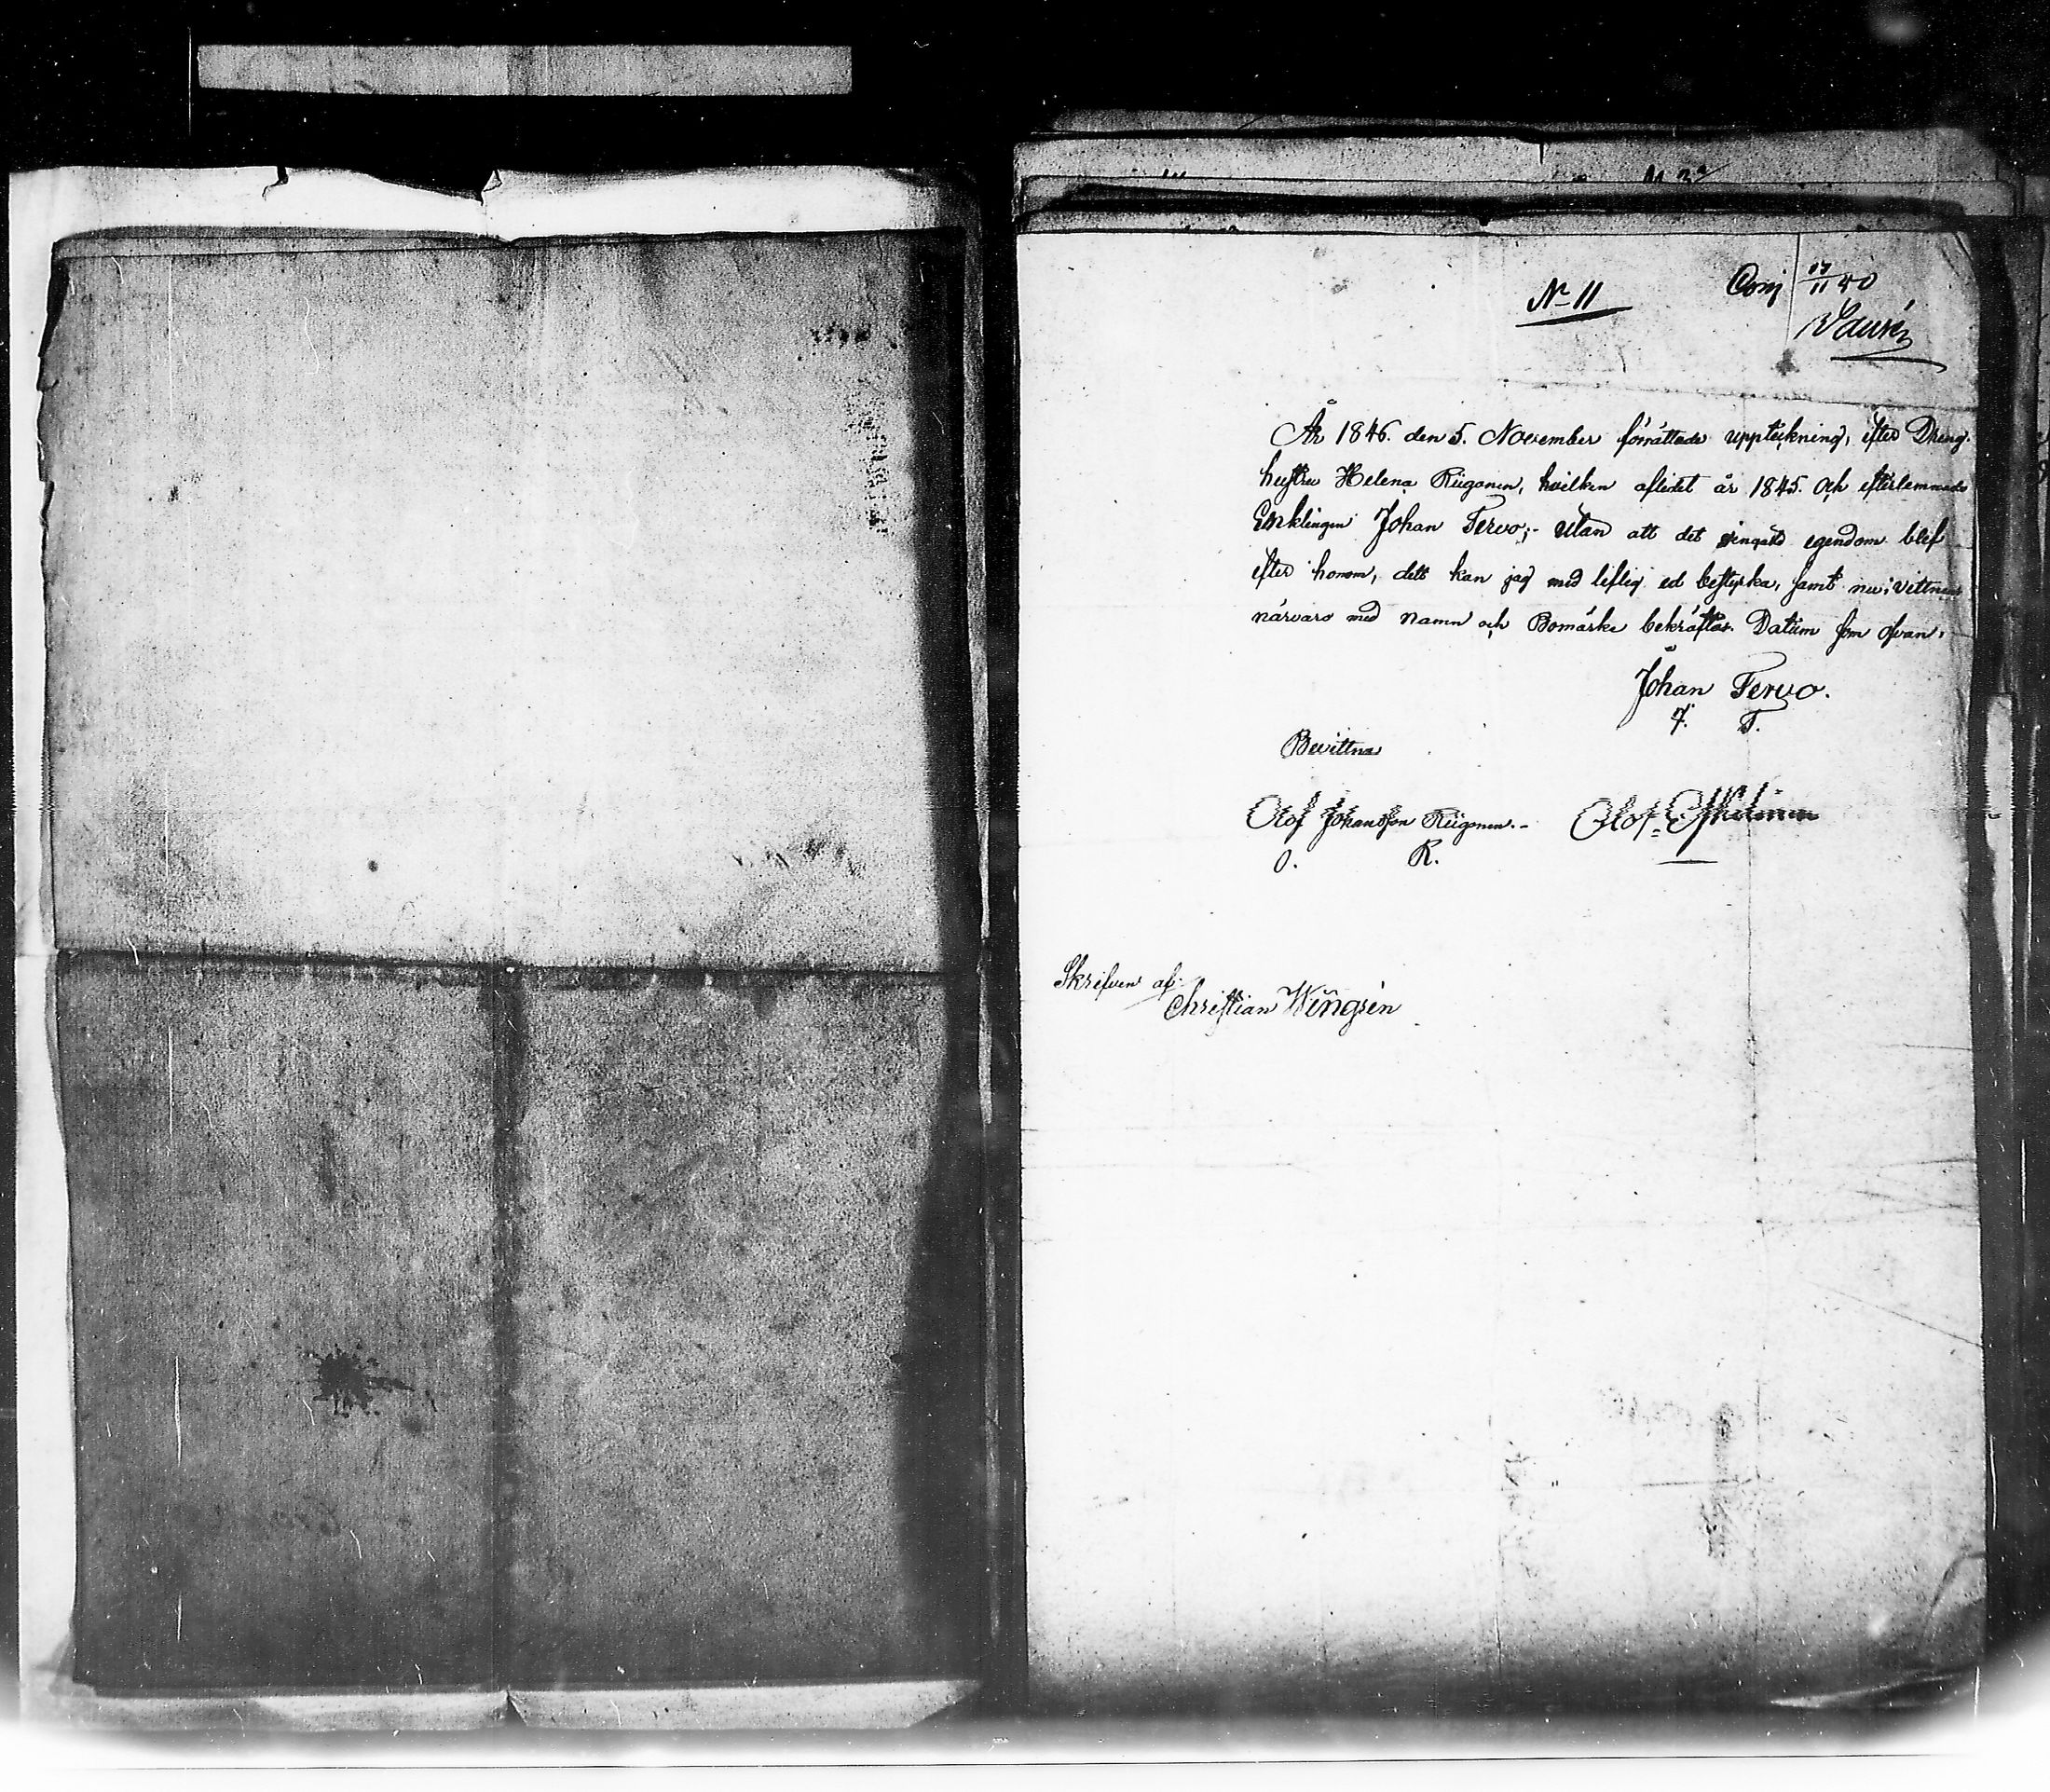 No 11
År 1846. den 5. November förrättade uppteckning, efter Dreng
hustru Helena Riigonen, hvilken aflidit år 1845. Och efterlemnade
Enklingen Johan Tervo;- utan att det ringaste egendom blef
efter honom, dett kan jag med liflig ed bestyrka, samt nu, vittnens
närvaro med namn och Bomärke bekräftas. Datum som ofvan.
Johan Tervo.
J. T.
Bevittna
Olof Johansson Riigonen.-
Olof
O. R.
Skrifven af:
Christian Wingrén